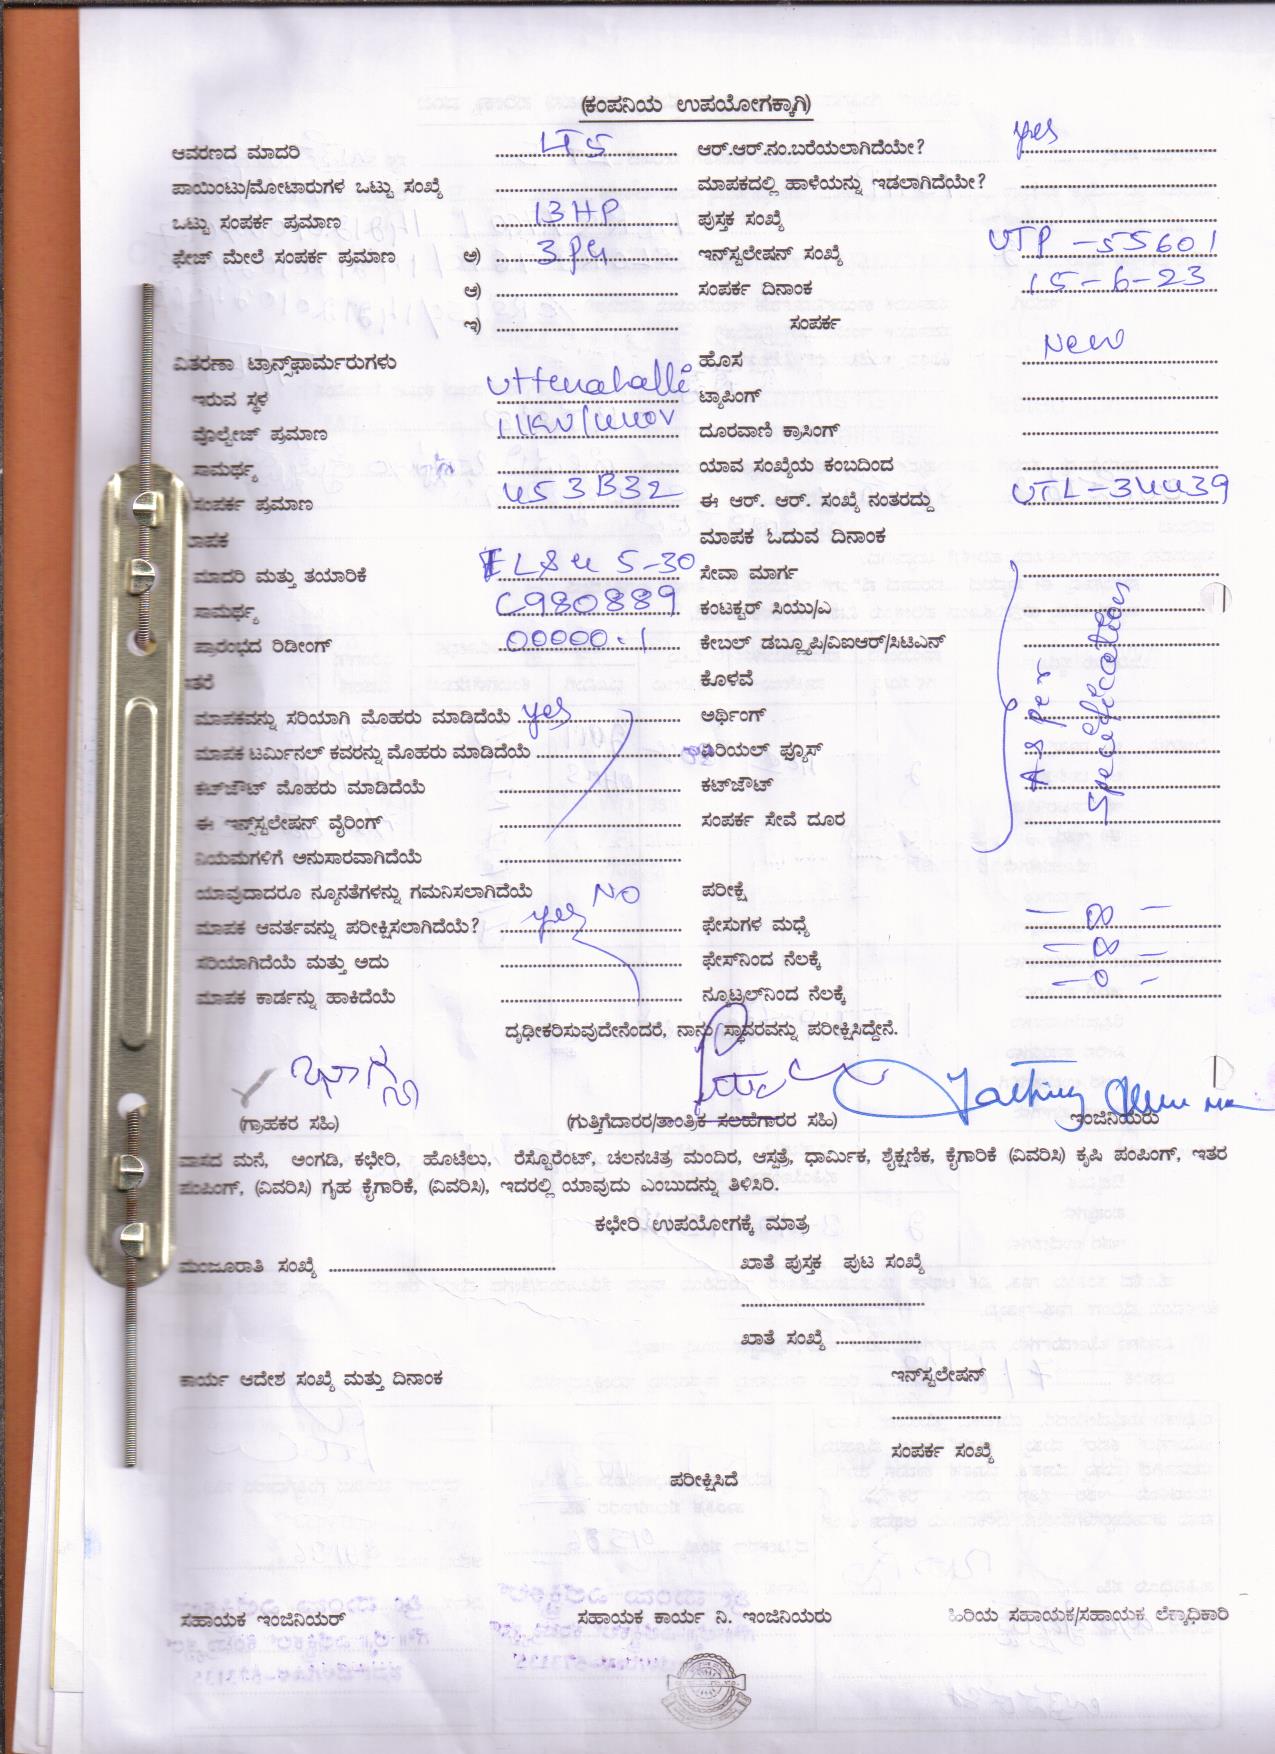 (ಕಂಪನಿಯ ಉಪಯೋಗಕ್ಕಾಗಿ)
ಆವರಣದ ಮಾದರಿ 45 ಆರ್.ಆರ್.ನಂ.ಬರೆಯಲಾಗಿದೆಯೇ? yes
ಪಾಯಿಂಟು/ಮೋಟಾರುಗಳ ಒಟ್ಟು ಸಂಖ್ಯೆ ಮಾಪಕದಲ್ಲಿ ಹಾಳೆಯನ್ನು ಇಡಲಾಗಿದೆಯೇ?
ಒಟ್ಟು ಸಂಪರ್ಕ ಪ್ರಮಾಣ 13HP ಪುಸ್ತಕ ಸಂಖ್ಯೆ
ಫೇಜ್ ಮೇಲೆ ಸಂಪರ್ಕ ಪ್ರಮಾಣ ಅ) ಇನ್‌ಸ್ಟಲೇಷನ್ ಸಂಖ್ಯೆ UTP-55601
ಆ) ಸಂಪರ್ಕ ದಿನಾಂಕ 15-6-23
ಇ) ಸಂಪರ್ಕ
ವಿತರಣಾ ಟ್ರಾನ್ಸ್‌ಫಾರ್ಮರುಗಳು ಹೊಸ New
ಇರುವ ಸ್ಥಳ Uttenahalli ಟ್ಯಾಪಿಂಗ್
ವೊಲ್ಟೇಜ್ ಪ್ರಮಾಣ 11KV/440V ದೂರವಾಣಿ ಕ್ರಾಸಿಂಗ್
ಸಾಮರ್ಥ್ಯ ಯಾವ ಸಂಖ್ಯೆಯ ಕಂಬದಿಂದ
ಸಂಪರ್ಕ ಪ್ರಮಾಣ 453B32 ಈ ಆರ್. ಆರ್. ಸಂಖ್ಯೆ ನಂತರದ್ದು UTL-34439
ಮಾಪಕ ಓದುವ ದಿನಾಂಕ
ಮಾದರಿ ಮತ್ತು ತಯಾರಿಕೆ 5-30 ಸೇವಾ ಮಾರ್ಗ
ಸಾಮರ್ಥ್ಯ C980889 ಕಂಟಕ್ಟರ್ ಸಿಯು/ಎ
ಪ್ರಾರಂಭದ ರಿಡೀಂಗ್ 00000.1 ಕೇಬಲ್ ಡಬ್ಲ್ಯೂಪಿ/ವಿಐಆರ್/ಸಿಟಿಎನ್ As per Specification
ಕೊಳವೆ
ಮಾಪಕವನ್ನು ಸರಿಯಾಗಿ ಮೊಹರು ಮಾಡಿದೆಯೆ yes ಅರ್ಥಿಂಗ್
ಮಾಪಕ ಟರ್ಮಿನಲ್ ಕವರನ್ನು ಮೊಹರು ಮಾಡಿದೆಯೆ ಏರಿಯಲ್ ಫ್ಯೂಸ್
ಕಟ್‌ಔಟ್ ಮೊಹರು ಮಾಡಿದೆಯೆ ಕಟ್‌ಔಟ್
ಈ ಇನ್‌ಸ್ಟಲೇಷನ್ ವೈರಿಂಗ್ ಸಂಪರ್ಕ ಸೇವೆ ದೂರ
ನಿಯಮಗಳಿಗೆ ಅನುಸಾರವಾಗಿದೆಯೆ
ಯಾವುದಾದರೂ ನ್ಯೂನತೆಗಳನ್ನು ಗಮನಿಸಲಾಗಿದೆಯೆ NO ಪರೀಕ್ಷೆ
ಮಾಪಕ ಆವರ್ತವನ್ನು ಪರೀಕ್ಷಿಸಲಾಗಿದೆಯೆ? yes ಫೇಸುಗಳ ಮಧ್ಯೆ – ∞ –
ಸರಿಯಾಗಿದೆಯೆ ಮತ್ತು ಅದು ಫೇಸ್‌ನಿಂದ ನೆಲಕ್ಕೆ – ∞ –
ಮಾಪಕ ಕಾರ್ಡನ್ನು ಹಾಕಿದೆಯೆ ನ್ಯೂಟ್ರಲ್‌ನಿಂದ ನೆಲಕ್ಕೆ – 0 –
ದೃಢೀಕರಿಸುವುದೇನೆಂದರೆ, ನಾನು ಸ್ಥಾವರವನ್ನು ಪರೀಕ್ಷಿಸಿದ್ದೇನೆ.
(ಗ್ರಾಹಕರ ಸಹಿ) (ಗುತ್ತಿಗೆದಾರರ/ತಾಂತ್ರಿಕ ಸಲಹೆಗಾರರ ಸಹಿ) ಇಂಜಿನಿಯರು
ವಾಸದ ಮನೆ, ಅಂಗಡಿ, ಕಛೇರಿ, ಹೊಟೆಲು, ರೆಸ್ಟೊರೆಂಟ್, ಚಲನಚಿತ್ರ ಮಂದಿರ, ಆಸ್ಪತ್ರೆ, ಧಾರ್ಮಿಕ, ಶೈಕ್ಷಣಿಕ, ಕೈಗಾರಿಕೆ (ವಿವರಿಸಿ) ಕೃಷಿ ಪಂಪಿಂಗ್, ಇತರ
ಪಂಪಿಂಗ್, (ವಿವರಿಸಿ) ಗೃಹ ಕೈಗಾರಿಕೆ, (ವಿವರಿಸಿ), ಇದರಲ್ಲಿ ಯಾವುದು ಎಂಬುದನ್ನು ತಿಳಿಸಿರಿ.
ಕಛೇರಿ ಉಪಯೋಗಕ್ಕೆ ಮಾತ್ರ
ಮಂಜೂರಾತಿ ಸಂಖ್ಯೆ ಖಾತೆ ಪುಸ್ತಕ ಪುಟ ಸಂಖ್ಯೆ
ಖಾತೆ ಸಂಖ್ಯೆ
ಕಾರ್ಯ ಆದೇಶ ಸಂಖ್ಯೆ ಮತ್ತು ದಿನಾಂಕ ಇನ್‌ಸ್ಟಲೇಷನ್
ಸಂಪರ್ಕ ಸಂಖ್ಯೆ
ಪರೀಕ್ಷಿಸಿದೆ
ಸಹಾಯಕ ಇಂಜಿನಿಯರ್ ಸಹಾಯಕ ಕಾರ್ಯ ನಿ. ಇಂಜಿನಿಯರು ಹಿರಿಯ ಸಹಾಯಕ/ಸಹಾಯಕ ಲೆಕ್ಕಾಧಿಕಾರಿ